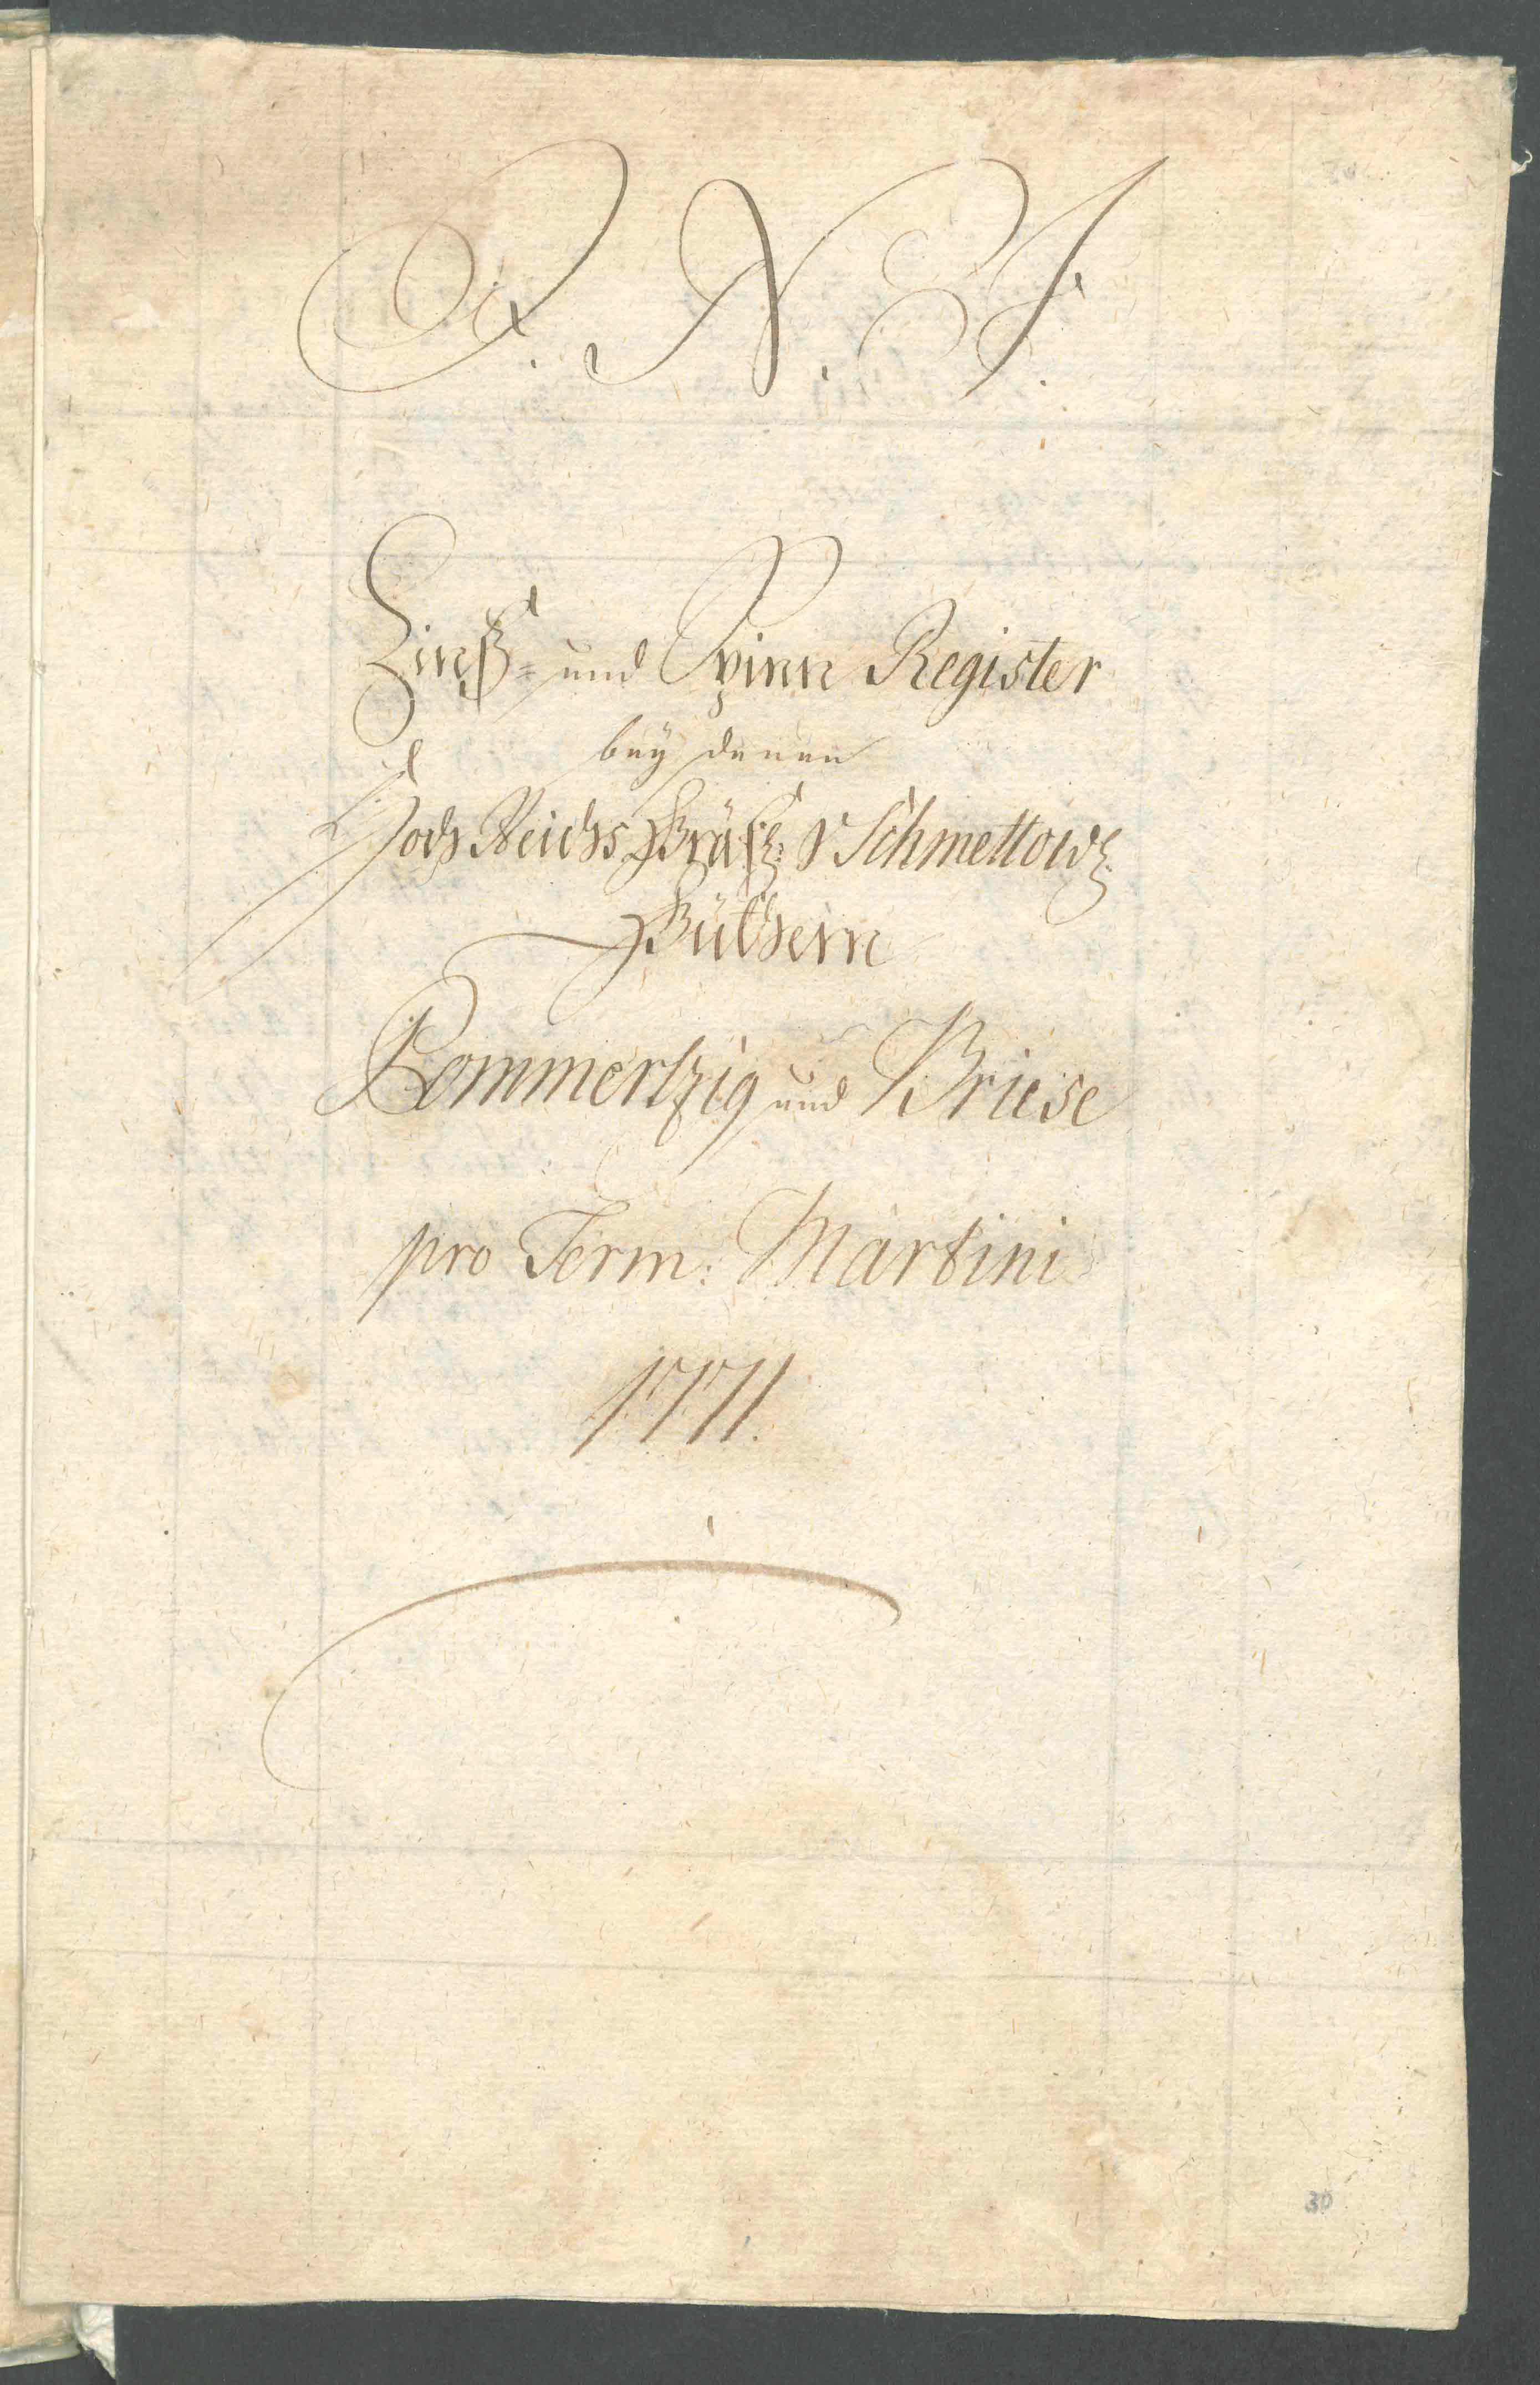 J. N. J.
Zinß- und Spinn Register
bey denen
Hoch Reichs Gräfl: v Schmettow:
Güthern
Pommertzig und Briese
pro Term: Martini
1771.
30